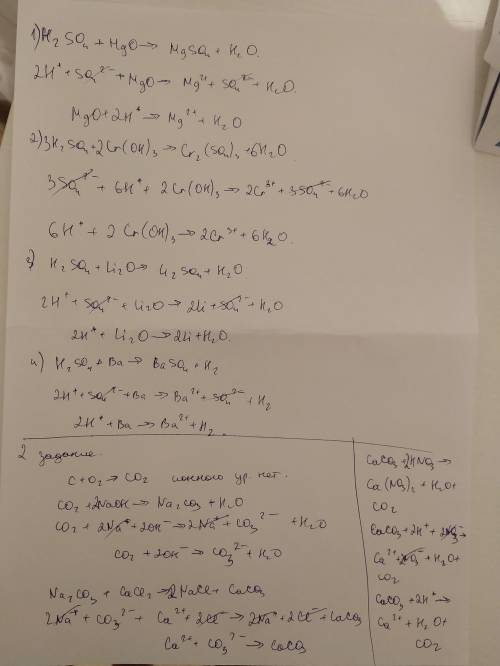 1) H₂SO₄ + MgO → MgSO₄ + H₂O.
2H⁺ + SO₄²⁻ + MgO → Mg²⁺ + SO₄²⁻ + H₂O.
MgO + 2H⁺ → Mg²⁺ + H₂O
2) 3H₂SO₄ + 2Cr(OH)₃ → Cr₂(SO₄)₃ + 6H₂O
3SO₄²⁻ + 6H⁺ + 2Cr(OH)₃ → 2Cr³⁺ + 3SO₄²⁻ + 6H₂O
6H⁺ + 2Cr(OH)₃ → 2Cr³⁺ + 6H₂O.
3) H₂SO₄ + Li₂O → Li₂SO₄ + H₂O.
2H⁺ + SO₄²⁻ + Li₂O → 2Li + SO₄²⁻ + H₂O
2H⁺ + Li₂O → 2Li + H₂O.
4) H₂SO₄ + Ba → BaSO₄ + H₂
2H⁺ + SO₄²⁻ + Ba → Ba²⁺ + SO₄²⁻ + H₂
2H⁺ + Ba → Ba²⁺ + H₂.
2 задание.
C + O₂ → CO₂ ионного ур нет.
CO₂ + 2NaOH → Na₂CO₃ + H₂O
CO₂ + 2Na⁺ + 2OH⁻ → 2Na⁺ + CO₃²⁻ + H₂O
CO₂ + 2OH⁻ → CO₃²⁻ + H₂O
Na₂CO₃ + CaCl₂ → 2NaCl + CaCO₃
2Na⁺ + CO₃²⁻ + Ca²⁺ + 2Cl⁻ → 2Na⁺ + 2Cl⁻ + CaCO₃
Ca²⁺ + CO₃²⁻ → CaCO₃
CaCO₃ + 2HNO₃ →
Ca(NO₃)₂ + H₂O +
CO₂
CaCO₃ + 2H⁺ + 2NO₃⁻ →
Ca²⁺ + 2NO₃⁻ + H₂O +
CO₂
CaCO₃ + 2H⁺ →
Ca²⁺ + H₂O +
CO₂